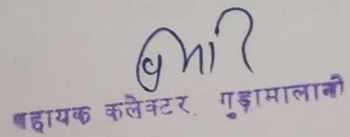 सहायक कलेक्टर, गुड़ामालानी